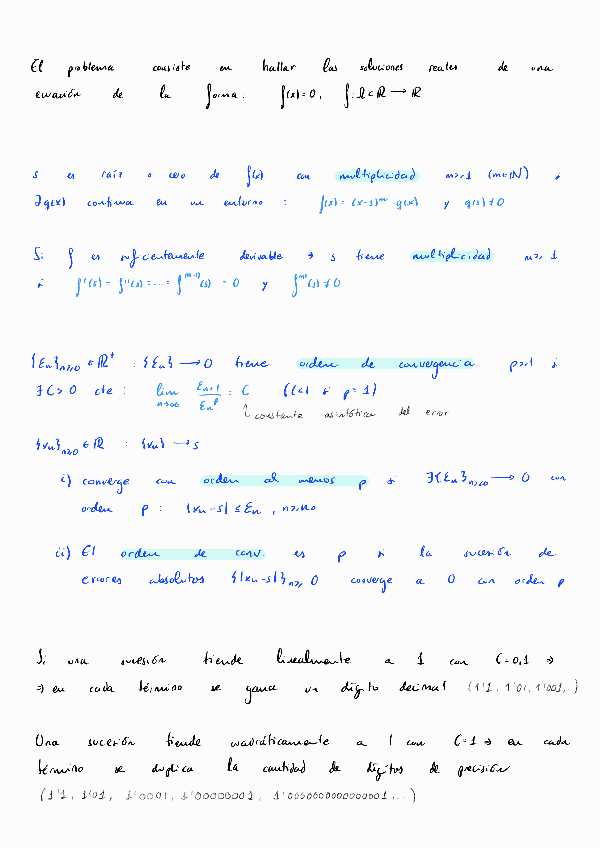 El problema consiste en hallar las soluciones reales de una
ecuación de la forma: f(x)=0, f: Ω⊂ℝ → ℝ
s es raíz o cero de f(x) con multiplicidad m≥1 (m∈ℕ) si
∃q(x) continua en un entorno : f(x) = (x-s)^m · q(x) y q(s)≠0
Si f es suficientemente derivable → s tiene multiplicidad m≥1
si f'(s) = f''(s) = ... = f^(m-1)(s) = 0 y f^(m)(s) ≠ 0
{εn}n≥0 ∈ ℝ⁺ : {εn} → 0 tiene orden de convergencia p≥1 si
∃C>0 cte : lim n→∞ εn+1 / εn^p = C (C<1 si p=1)
constante asintótica del error
{xn}n≥0 ∈ ℝ : {xn} → s
i) converge con orden al menos p si ∃{εn}n≥0 → 0 con
orden p : |xn-s| ≤ εn , n≥n0
ii) El orden de conv. es p si la sucesión de
errores absolutos {|xn-s|}n≥0 converge a 0 con orden p
Si una sucesión tiende linealmente a 1 con C=0,1 ⇒
⇒ en cada término se gana un dígito decimal (1'1, 1'01, 1'001,..)
Una sucesión tiende cuadráticamente a 1 con C=1 ⇒ en cada
término se duplica la cantidad de dígitos de precisión
(1'1, 1'01, 1'0001, 1'00000001, 1'0000000000000001,...)